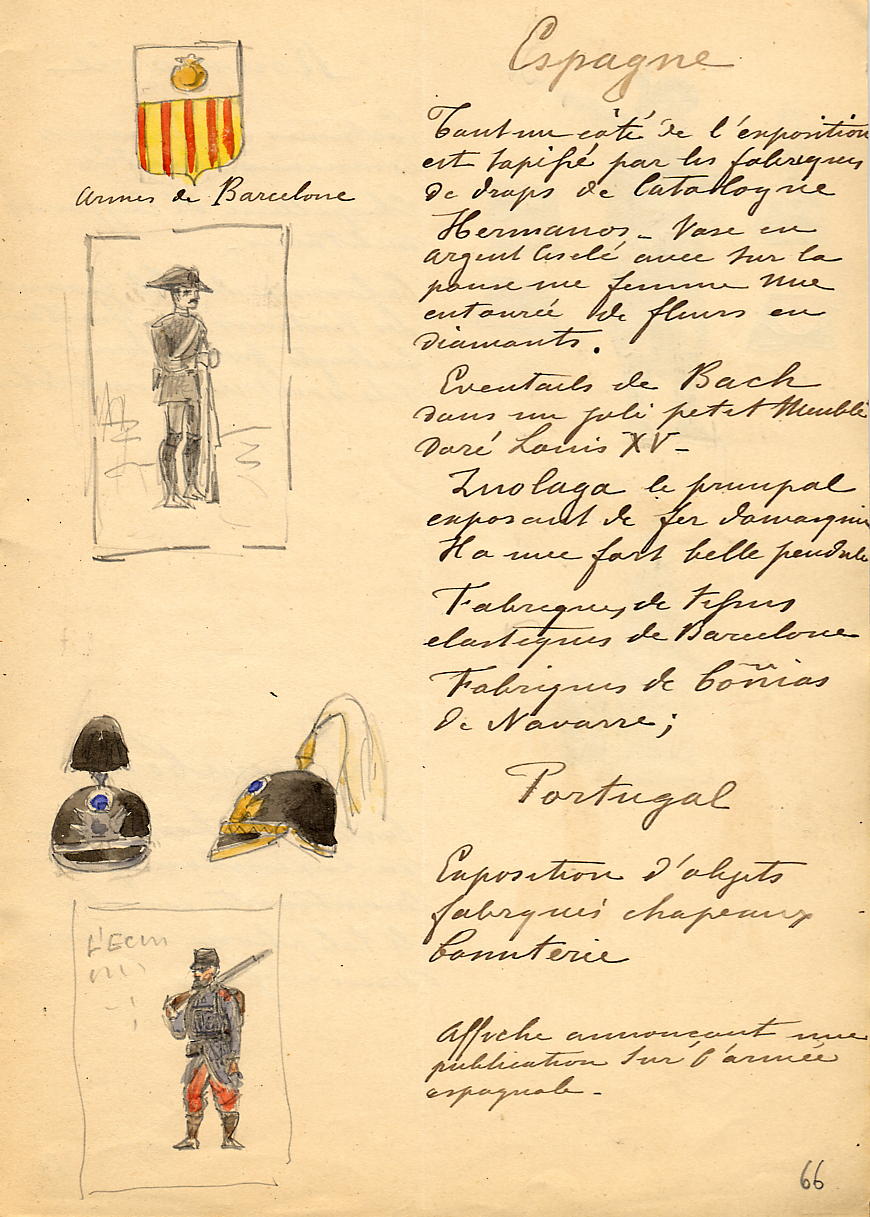 Armes de Barcelone
Espagne
Tout un côté de l'exposition
est tapissé par les fabriques
de draps de Catalogne
Hermanos - Vase en
argent ciselé avec sur la
panse une femme nue
entourée de fleurs en
diamants.
Eventails de Bach
dans un joli petit meuble
doré Louis XV -
Zuolaga le principal
exposant de fer damasquin
Il a une fort belle pendule
Fabriques de tissus
elastiques de Barcelone
Fabriques de
de Navarre;
Portugal
Exposition d'objets
fabriqués chapeaux
bonneterie
Affiche annonçant une
publication sur l'armée
espagnole -
66